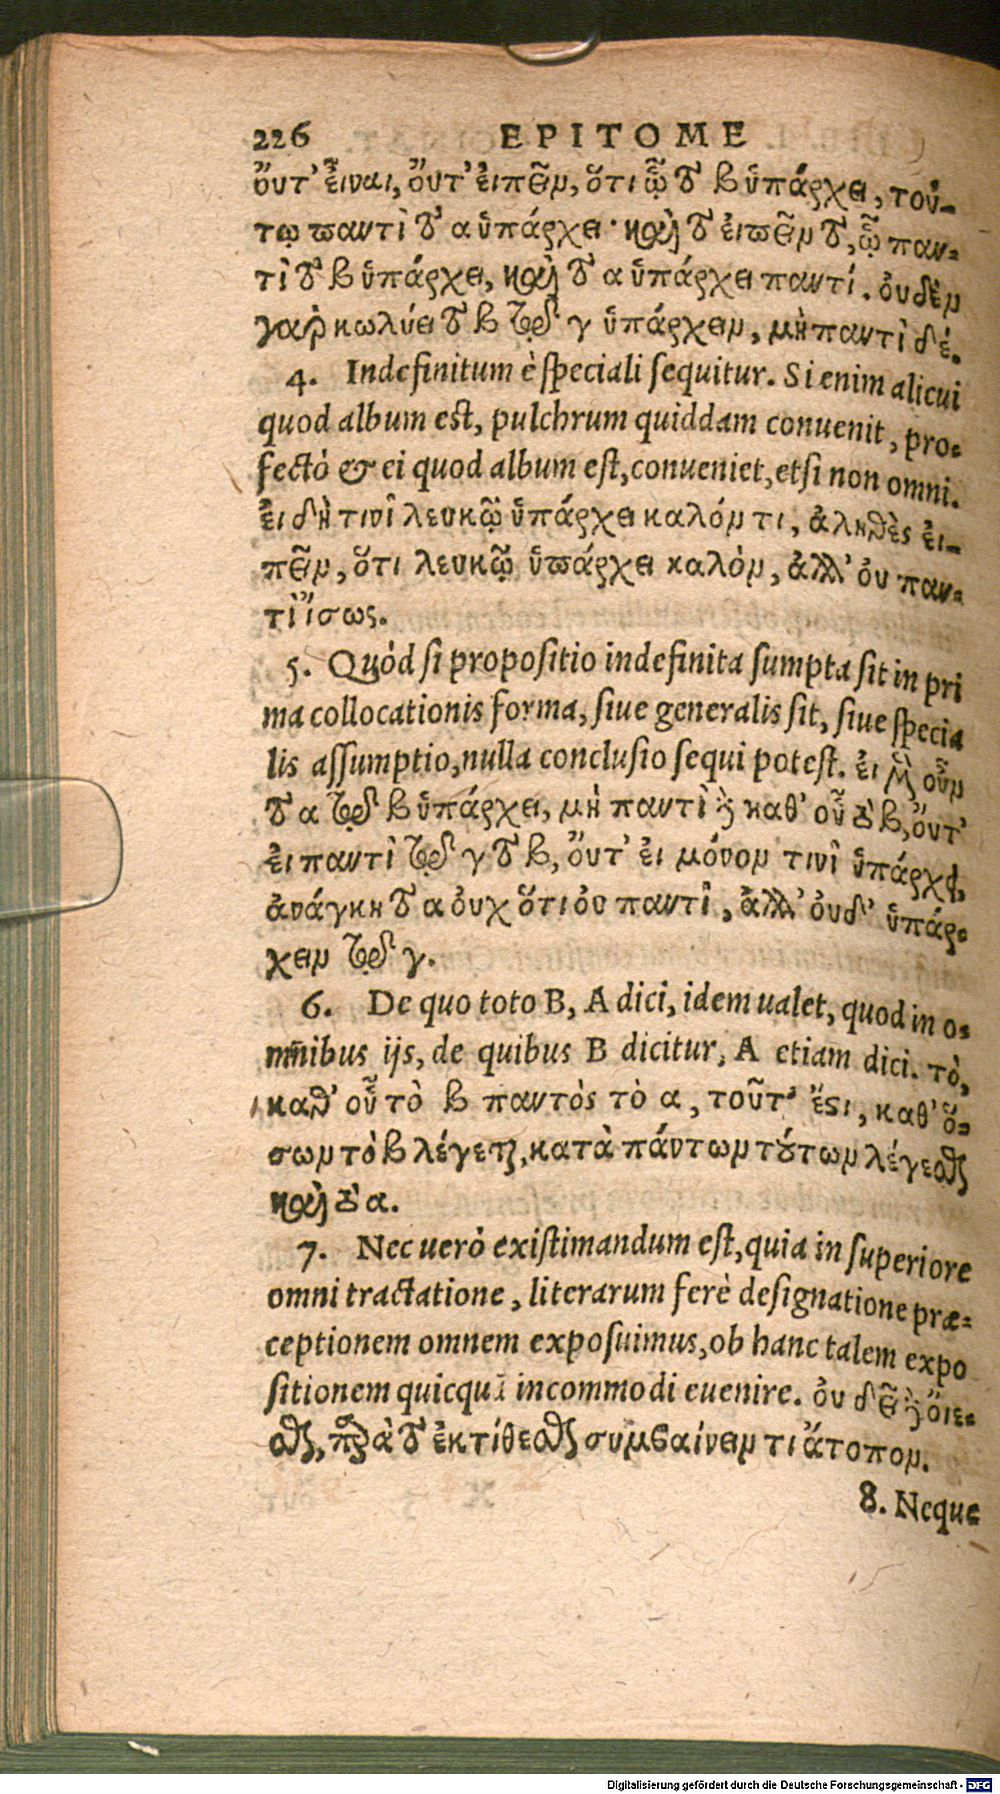 226 EPITOME
οὔτ' εἶναι, οὔτ' εἰπεῖν, ὅτι ᾧ τὸ β ὑπάρχει, τού-
τῳ παντὶ τὸ α ὑπάρχει· καὶ τὸ εἰπεῖν τὸ, ᾧ παν-
τὶ τὸ β ὑπάρχει, καὶ τὸ α ὑπάρχει παντί. οὐδὲν
γαρ κωλύει τὸ β τῷ γ ὑπάρχειν, μὴ παντὶ δέ.
4. Indefinitum è speciali sequitur. Si enim alicui
quod album est, pulchrum quiddam conuenit, pro-
fectò & ei quod album est, conueniet, etsi non omni.
εἰ δὴ τινὶ λευκῷ ὑπάρχει καλόν τι, ἀληθὲς εἰ-
πεῖν, ὅτι λευκῷ ὑπάρχει καλὸν, ἀλλ' οὐ παν-
τὶ ἴσως.
5. Quòd si propositio indefinita sumpta sit in pri
ma collocationis forma, siue generalis sit, siue specia
lis assumptio, nulla conclusio sequi potest. εἰ μὲν οὖν
τὸ α τῷ β ὑπάρχει, μὴ παντὶ δὲ καθ' οὗ τὸ β, οὔτ'
εἰ παντὶ τῷ γ τὸ β, οὔτ' εἰ μόνον τινὶ ὑπάρχει,
ἀνάγκη τὸ α οὐχ ὅτι οὐ παντὶ, ἀλλ' οὐδ' ὑπάρ-
χειν τῷ γ.
6. De quo toto B, A dici, idem ualet, quod in o-
mnibus ijs, de quibus B dicitur, A etiam dici. τὸ,
καθ' οὗ τὸ β παντὸς τὸ α, τοῦτ' ἔστι, καθ' ὅ-
σων τὸ β λέγεται, κατὰ πάντων τούτων λέγεσθαι
καὶ τὸ α.
7. Nec uerò existimandum est, quia in superiore
omni tractatione, literarum ferè designatione præ-
ceptionem omnem exposuimus, ob hanc talem expo
sitionem quicquā incommodi euenire. οὐ δεῖ δὲ οἴε-
σθαι, παρὰ τὸ ἐκτίθεσθαι συμβαίνειν τι ἄτοπον.
8. Neque
Digitalisierung gefördert durch die Deutsche Forschungsgemeinschaft - DFG